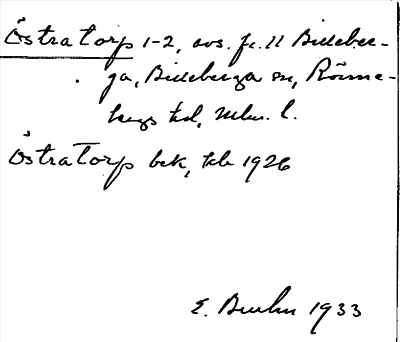 Östra Torp 1-2, avs. fr. 11 Billeber-
ga, Billeberga sn, Rönne-
bergs hd, Mlm. l.
Östra Torp bek, tele 1926
E. 1933